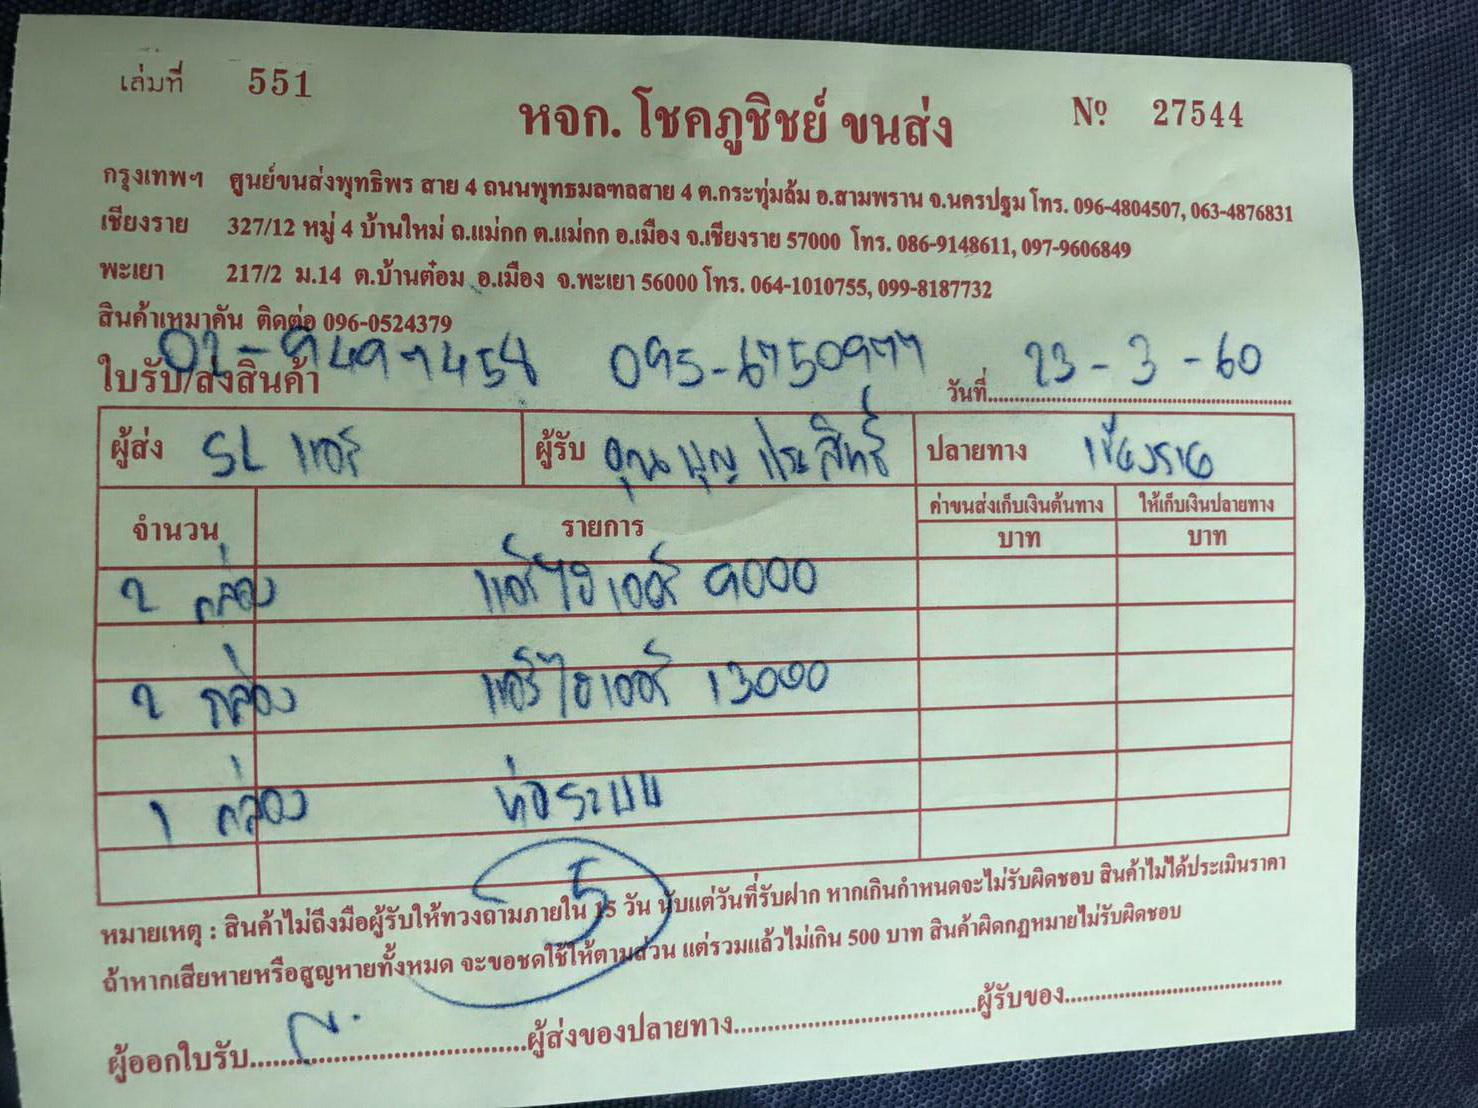 เล่มที่ 551
หจก. โชคภูชิชย์ ขนส่ง
Nº 27544
กรุงเทพฯ ศูนย์ขนส่งพุทธิพร สาย 4 ถนนพุทธมลฑลสาย 4 ต.กระทุ่มล้ม อ.สามพราน จ.นครปฐม โทร. 096-4804507, 063-4876831
เชียงราย 327/12 หมู่ 4 บ้านใหม่ ถ.แม่กก ต.แม่กก อ.เมือง จ.เชียงราย 57000 โทร. 086-9148611, 097-9606849
พะเยา 217/2 ม.14 ต.บ้านต๋อม อ.เมือง จ.พะเยา 56000 โทร. 064-1010755, 099-8187732
สินค้าเหมาคัน ติดต่อ 096-0524379
02-9497458 095-6750977
ใบรับ/ส่งสินค้า วันที่ 23-3-60
ผู้ส่ง SL แอร์ ผู้รับ คุณ บุญ ประสิทธิ์ ปลายทาง เชียงราย
จำนวน รายการ ค่าขนส่งเก็บเงินต้นทาง ให้เก็บเงินปลายทาง
บาท บาท
2 กล่อง แอร์ไฮเออร์ 9000
2 กล่อง แอร์ไฮเออร์ 13000
1 กล่อง ท่อระบบ
5
หมายเหตุ : สินค้าไม่ถึงมือผู้รับให้ทวงถามภายใน 15 วัน นับแต่วันที่รับฝาก หากเกินกำหนดจะไม่รับผิดชอบ สินค้าไม่ได้ประเมินราคา
ถ้าหากเสียหายหรือสูญหายทั้งหมด จะขอชดใช้ให้ตามส่วน แต่รวมแล้วไม่เกิน 500 บาท สินค้าผิดกฎหมายไม่รับผิดชอบ
ผู้ออกใบรับ ผู้ส่งของปลายทาง ผู้รับของ